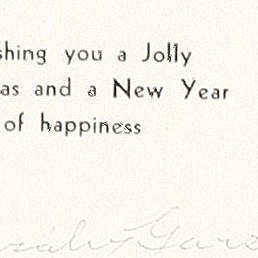 shing you a Jolly
as and a New Year
of happiness